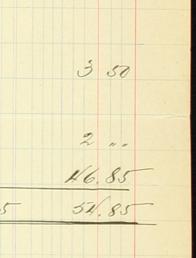 3 50
2 " "
46.85
5 54.85